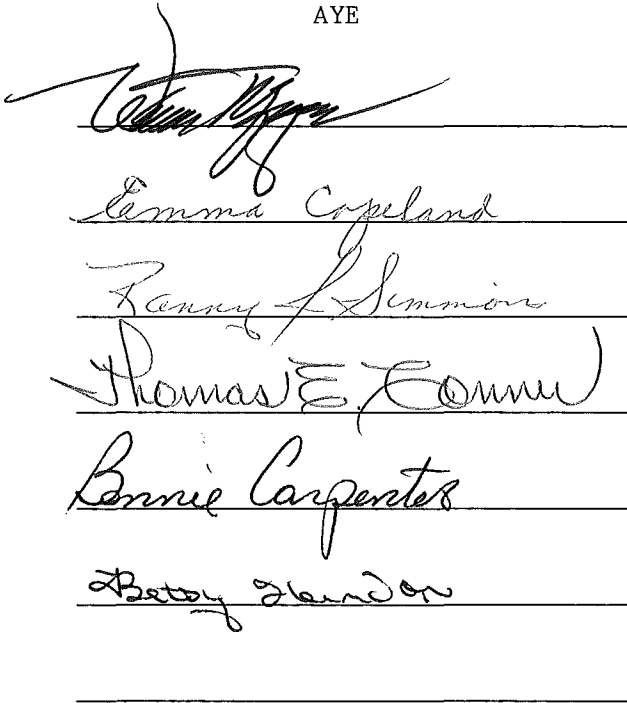 AYE
Emma Copeland
L. Simmons
Thomas E. Conner
Bennie Carpenter
Betsy Herndon